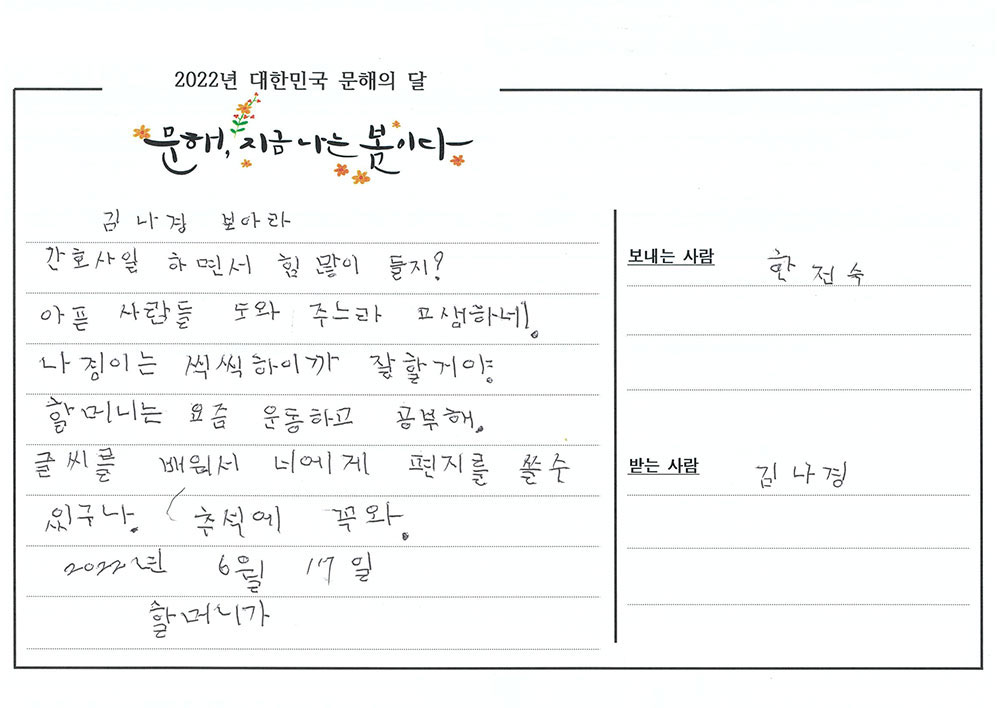 2022년 대한민국 문해의 달
문해, 지금 나는 봄이다
김나경 보아라
간호사일 하면서 힘 많이 들지?
아픈 사람들 도와 주느라 고생하네!
나경이는 씩씩하이까 잘할거야.
할머니는 요즘 운동하고 공부해.
글씨를 배워서 너에게 편지를 쓸수
있구나. 추석에 꼭와.
2022년 6월 17일
할머니가
보내는 사람
한전숙
받는 사람
김나경